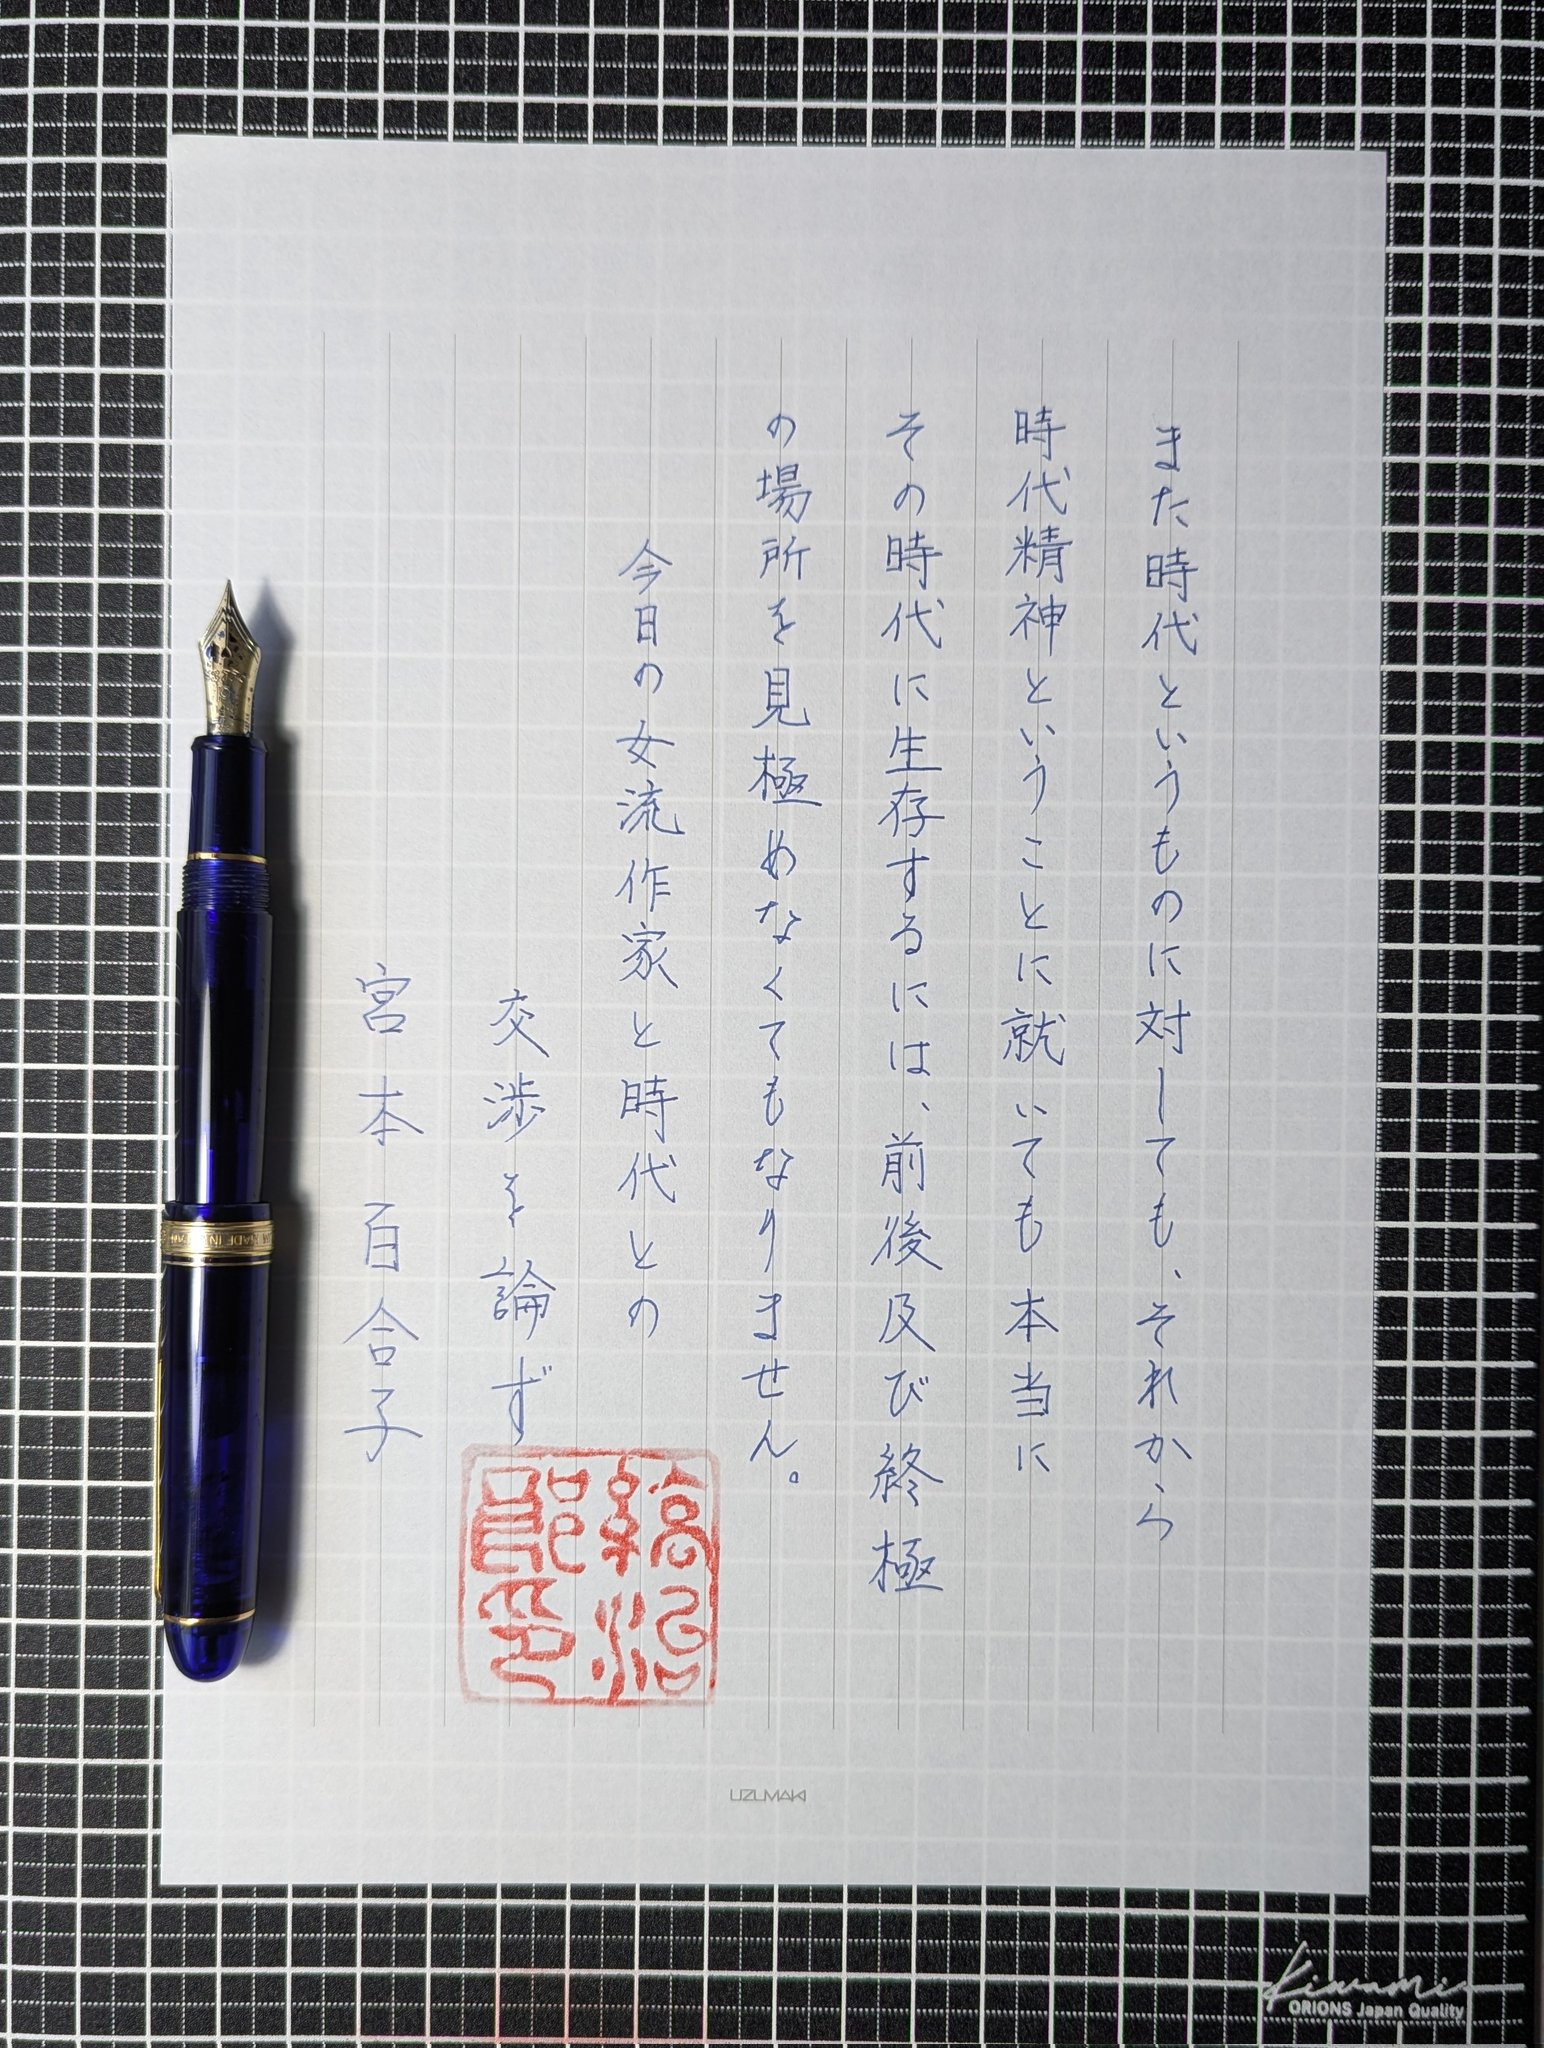 また時代というものに対しても、それから
時代精神ということに就いても本当に
その時代に生存するには、前後及び終極
の場所を見極めなくてもなりません。
今日の女流作家と時代との
交渉を論ず
宮本百合子
UZUMAKI
Kiwami
ORIONS Japan Quality